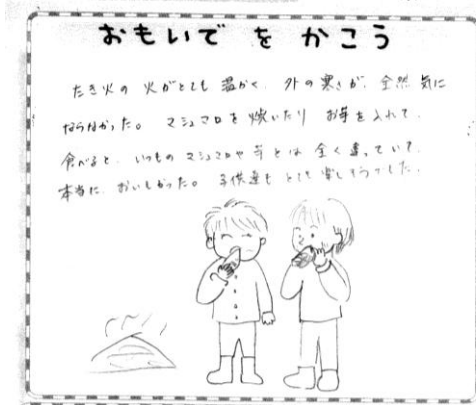 おもいで を かこう
たき火の 火がとても 温かく、外の寒さが、全然 気に
ならなかった。 マシュマロを 焼いたり お芋を入れて、
食べると、いつもの マシュマロや 芋とは 全く違っていて、
本当に、おいしかった。 子供達も とても 楽しそうでした。